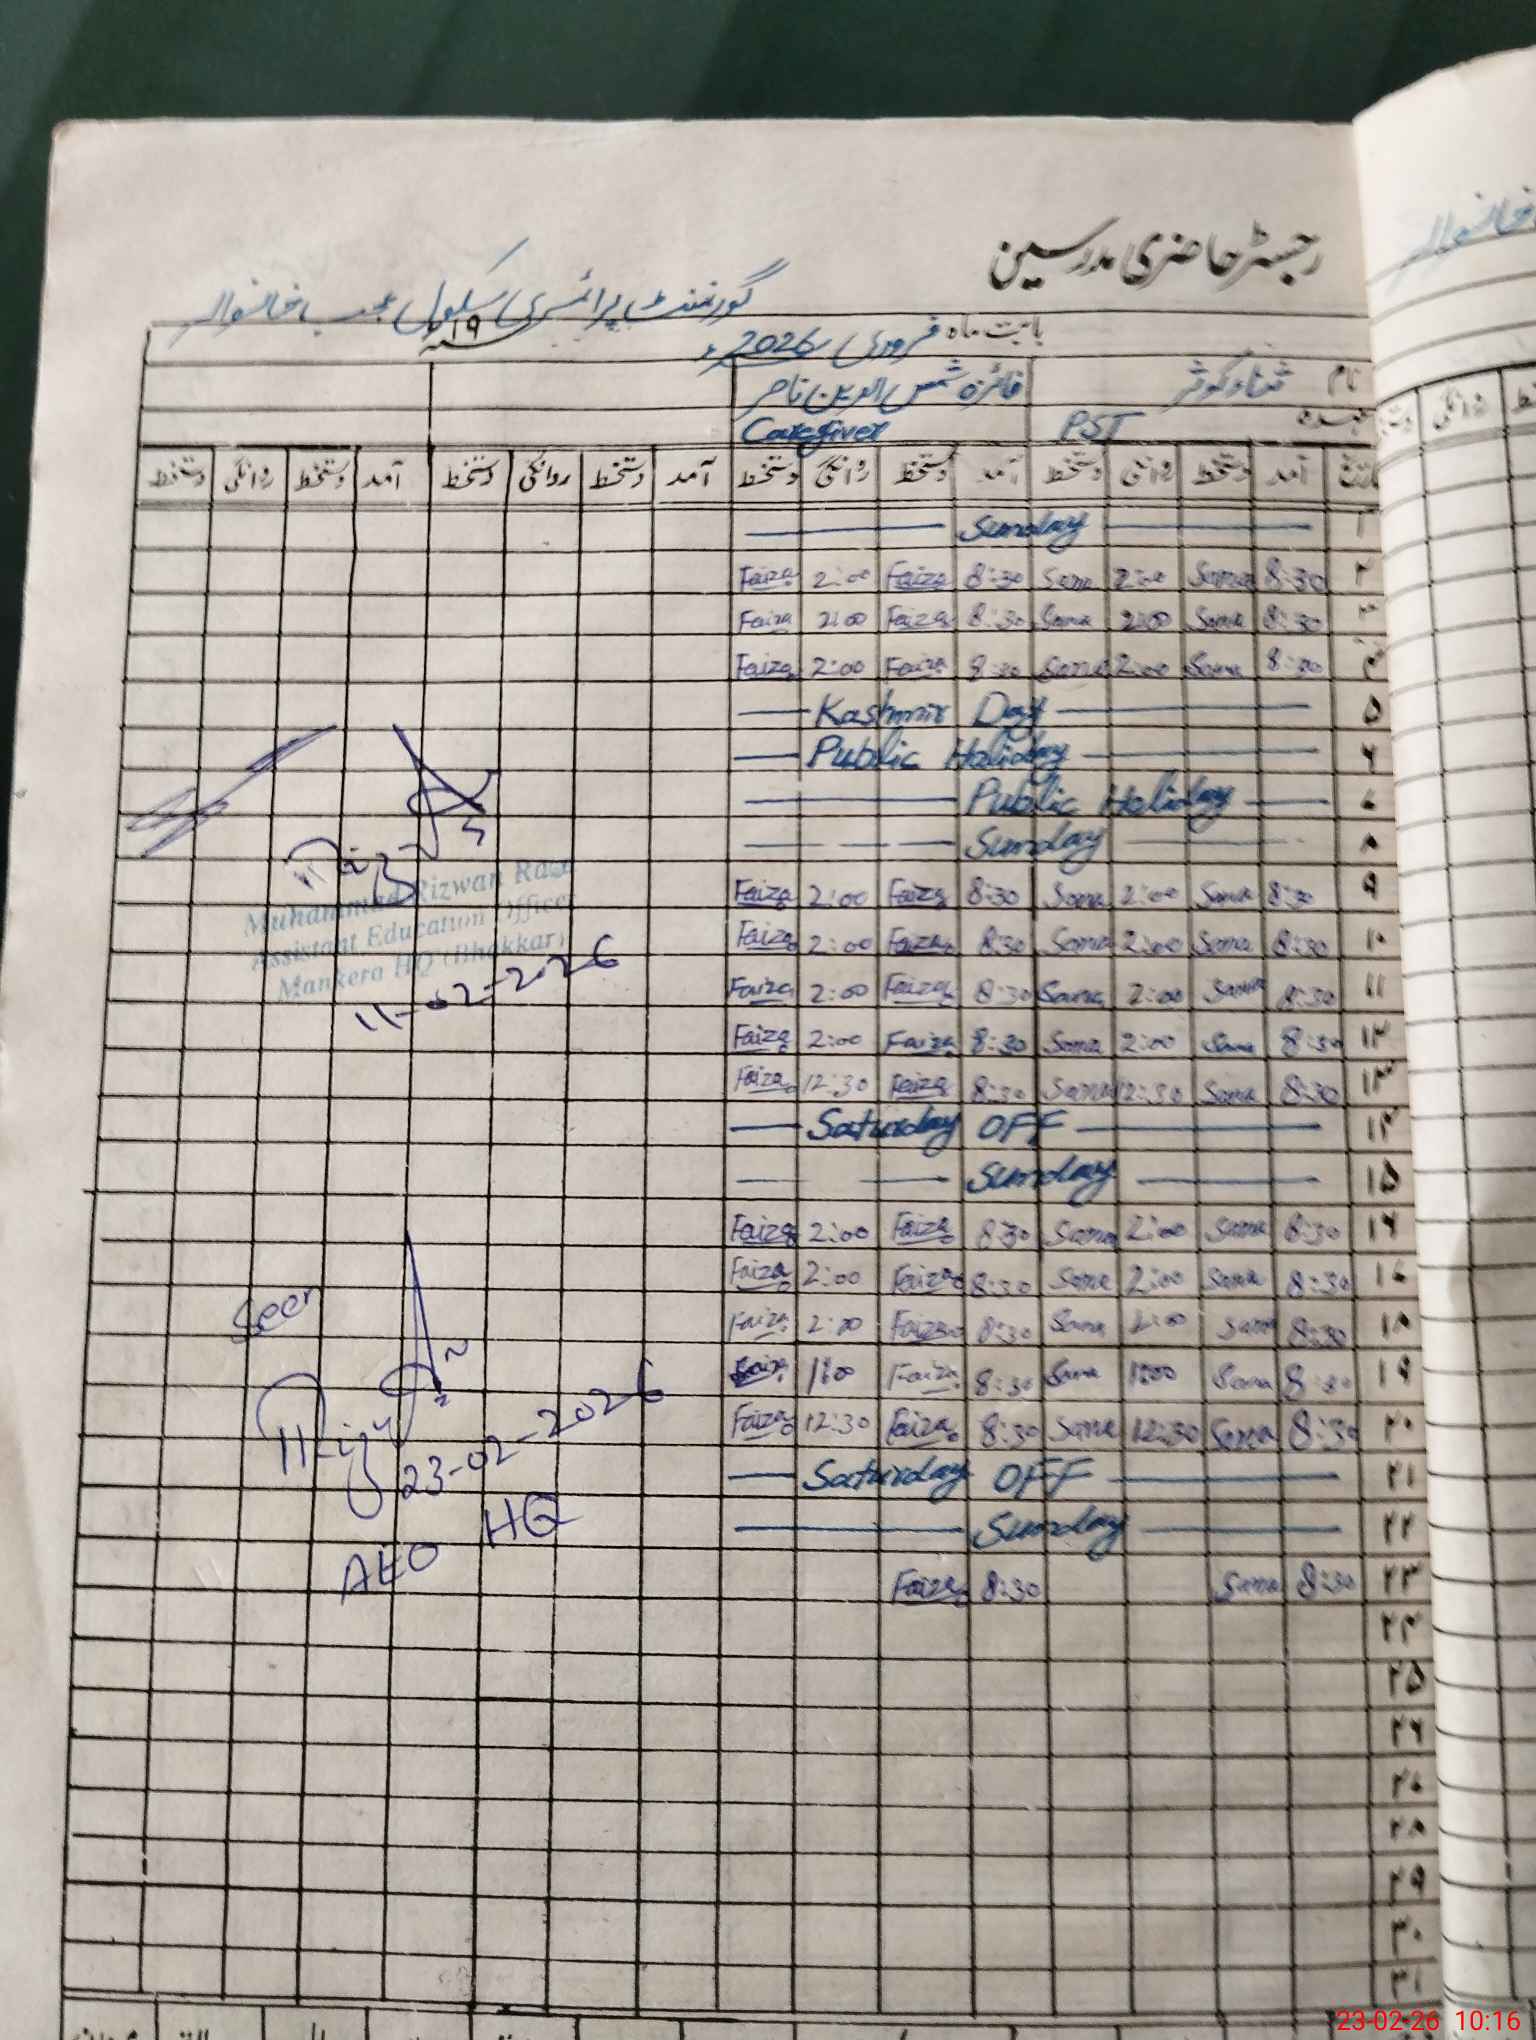 رجسٹر حاضری مدرسین
گورنمنٹ پرائمری سکول
بابت ماہ فروری 2026ء ۱۹
نام ثناء کوثر فائزہ شمس الدین ناصر
عہدہ PST Caregiver
تاریخ آمد دستخط روانگی دستخط آمد دستخط روانگی دستخط آمد دستخط روانگی دستخط آمد دستخط روانگی دستخط
۱ Sunday
۲ 8:30 Sana 2:00 Sana 8:30 Faiza 2:00 Faiza
۳ 8:30 Sana 2:00 Sana 8:30 Faiza 2:00 Faiza
۴ 8:30 Sana 2:00 Sana 8:30 Faiza 2:00 Faiza
۵ Kashmir Day
۶ Public Holiday
۷ Public Holiday
۸ Sunday
۹ 8:30 Sana 2:00 Sana 8:30 Faiza 2:00 Faiza
۱۰ 8:30 Sana 2:00 Sana 8:30 Faiza 2:00 Faiza
۱۱ 8:30 Sana 2:00 Sana 8:30 Faiza 2:00 Faiza
۱۲ 8:30 Sana 2:00 Sana 8:30 Faiza 2:00 Faiza
۱۳ 8:30 Sana 12:30 Sana 8:30 Faiza 12:30 Faiza
۱۴ Saturday OFF
۱۵ Sunday
۱۶ 8:30 Sana 2:00 Sana 8:30 Faiza 2:00 Faiza
۱۷ 8:30 Sana 2:00 Sana 8:30 Faiza 2:00 Faiza
۱۸ 8:30 Sana 2:00 Sana 8:30 Faiza 2:00 Faiza
۱۹ 8:30 Sana 1:00 Sana 8:30 Faiza 1:00 Faiza
۲۰ 8:30 Sana 12:30 Sana 8:30 Faiza 12:30 Faiza
۲۱ Saturday OFF
۲۲ Sunday
۲۳ 8:30 Sana 8:30 Faiza
۲۴
۲۵
۲۶
۲۷
۲۸
۲۹
۳۰
۳۱
Muhammad Rizwan Raza
Assistant Education Officer
Mankera HQ (Bhakkar)
11-02-2026
Seen
23-02-2026
AEO HQ
23-02-26 10:16